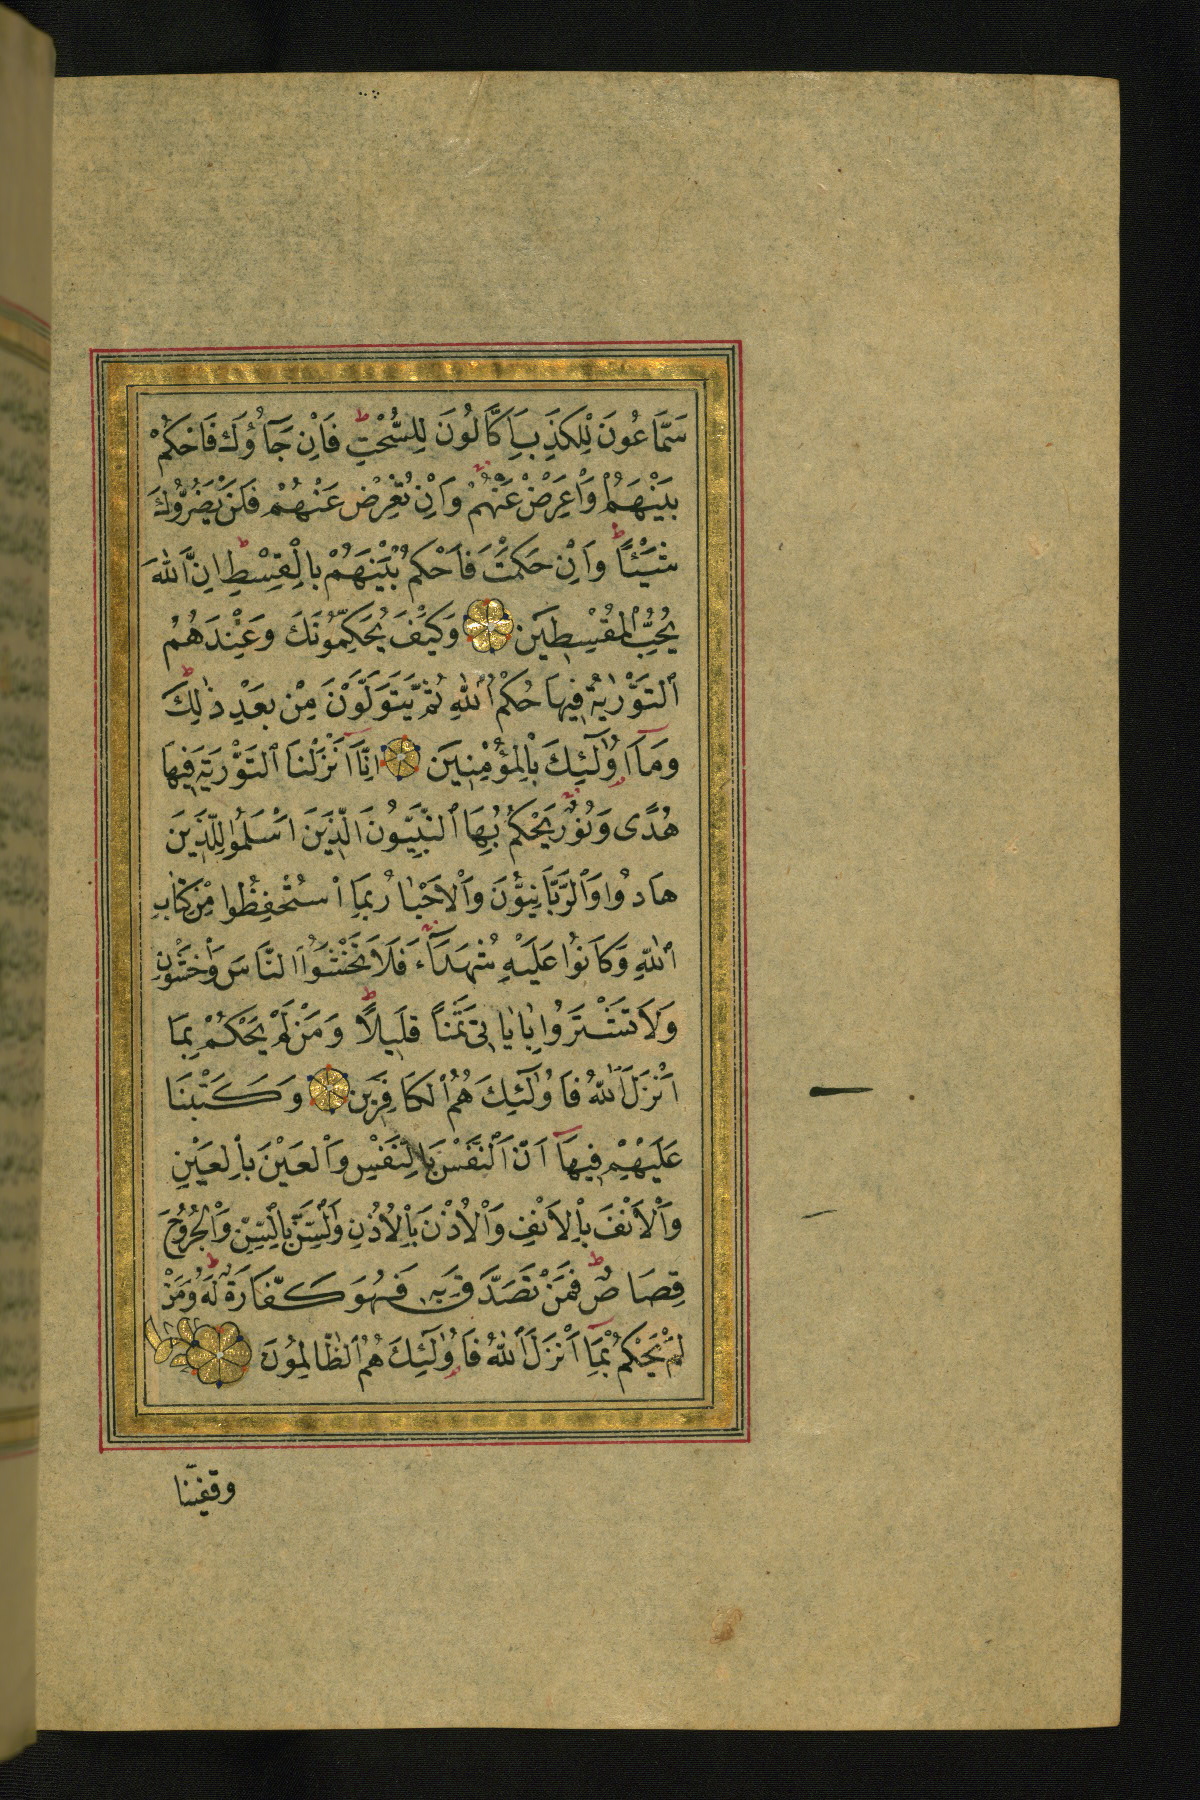 سَمَّاعُونَ لِلْكَذِبِ اَكَّالُونَ لِلسُّحْتِ ط فَاِنْ جَآؤُكَ فَاحْكُمْ
بَيْنَهُمْ اَوْ اَعْرِضْ عَنْهُمْ وَاِنْ تُعْرِضْ عَنْهُمْ فَلَنْ يَضُرُّوكَ
شَيْئًا ط وَاِنْ حَكَمْتَ فَاحْكُمْ بَيْنَهُمْ بِالْقِسْطِ ط اِنَّ اللّٰهَ
يُحِبُّ الْمُقْسِطِينَ وَكَيْفَ يُحَكِّمُونَكَ وَعِنْدَهُمُ
التَّوْرٰيةُ فِيهَا حُكْمُ اللّٰهِ ثُمَّ يَتَوَلَّوْنَ مِنْ بَعْدِ ذٰلِكَ ط
وَمَآ اُو۬لٰٓئِكَ بِالْمُؤْمِنِينَ اِنَّآ اَنْزَلْنَا التَّوْرٰيةَ فِيهَا
هُدًى وَنُورٌ يَحْكُمُ بِهَا النَّبِيُّونَ الَّذِينَ اَسْلَمُوا لِلَّذِينَ
هَادُوا وَالرَّبَّانِيُّونَ وَالْاَحْبَارُ بِمَا اسْتُحْفِظُوا مِنْ كِتَابِ
اللّٰهِ وَكَانُوا عَلَيْهِ شُهَدَآءَ فَلَا تَخْشَوُا النَّاسَ وَاخْشَوْنِ
وَلَا تَشْتَرُوا بِاٰيَاتِى ثَمَنًا قَلِيلًا ط وَمَنْ لَمْ يَحْكُمْ بِمَا
اَنْزَلَ اللّٰهُ فَاُو۬لٰٓئِكَ هُمُ الْكَافِرِينَ وَكَتَبْنَا
عَلَيْهِمْ فِيهَآ اَنَّ النَّفْسَ بِالنَّفْسِ وَالْعَيْنَ بِالْعَيْنِ
وَالْاَنْفَ بِالْاَنْفِ وَالْاُذُنَ بِالْاُذُنِ وَالسِّنَّ بِالسِّنِّ وَالْجُرُوحَ
قِصَاصٌ ط فَمَنْ تَصَدَّقَ بِهِ فَهُوَ كَفَّارَةٌ لَهُ ط وَمَنْ
لَمْ يَحْكُمْ بِمَآ اَنْزَلَ اللّٰهُ فَاُو۬لٰٓئِكَ هُمُ الظَّالِمُونَ
وقفّينا